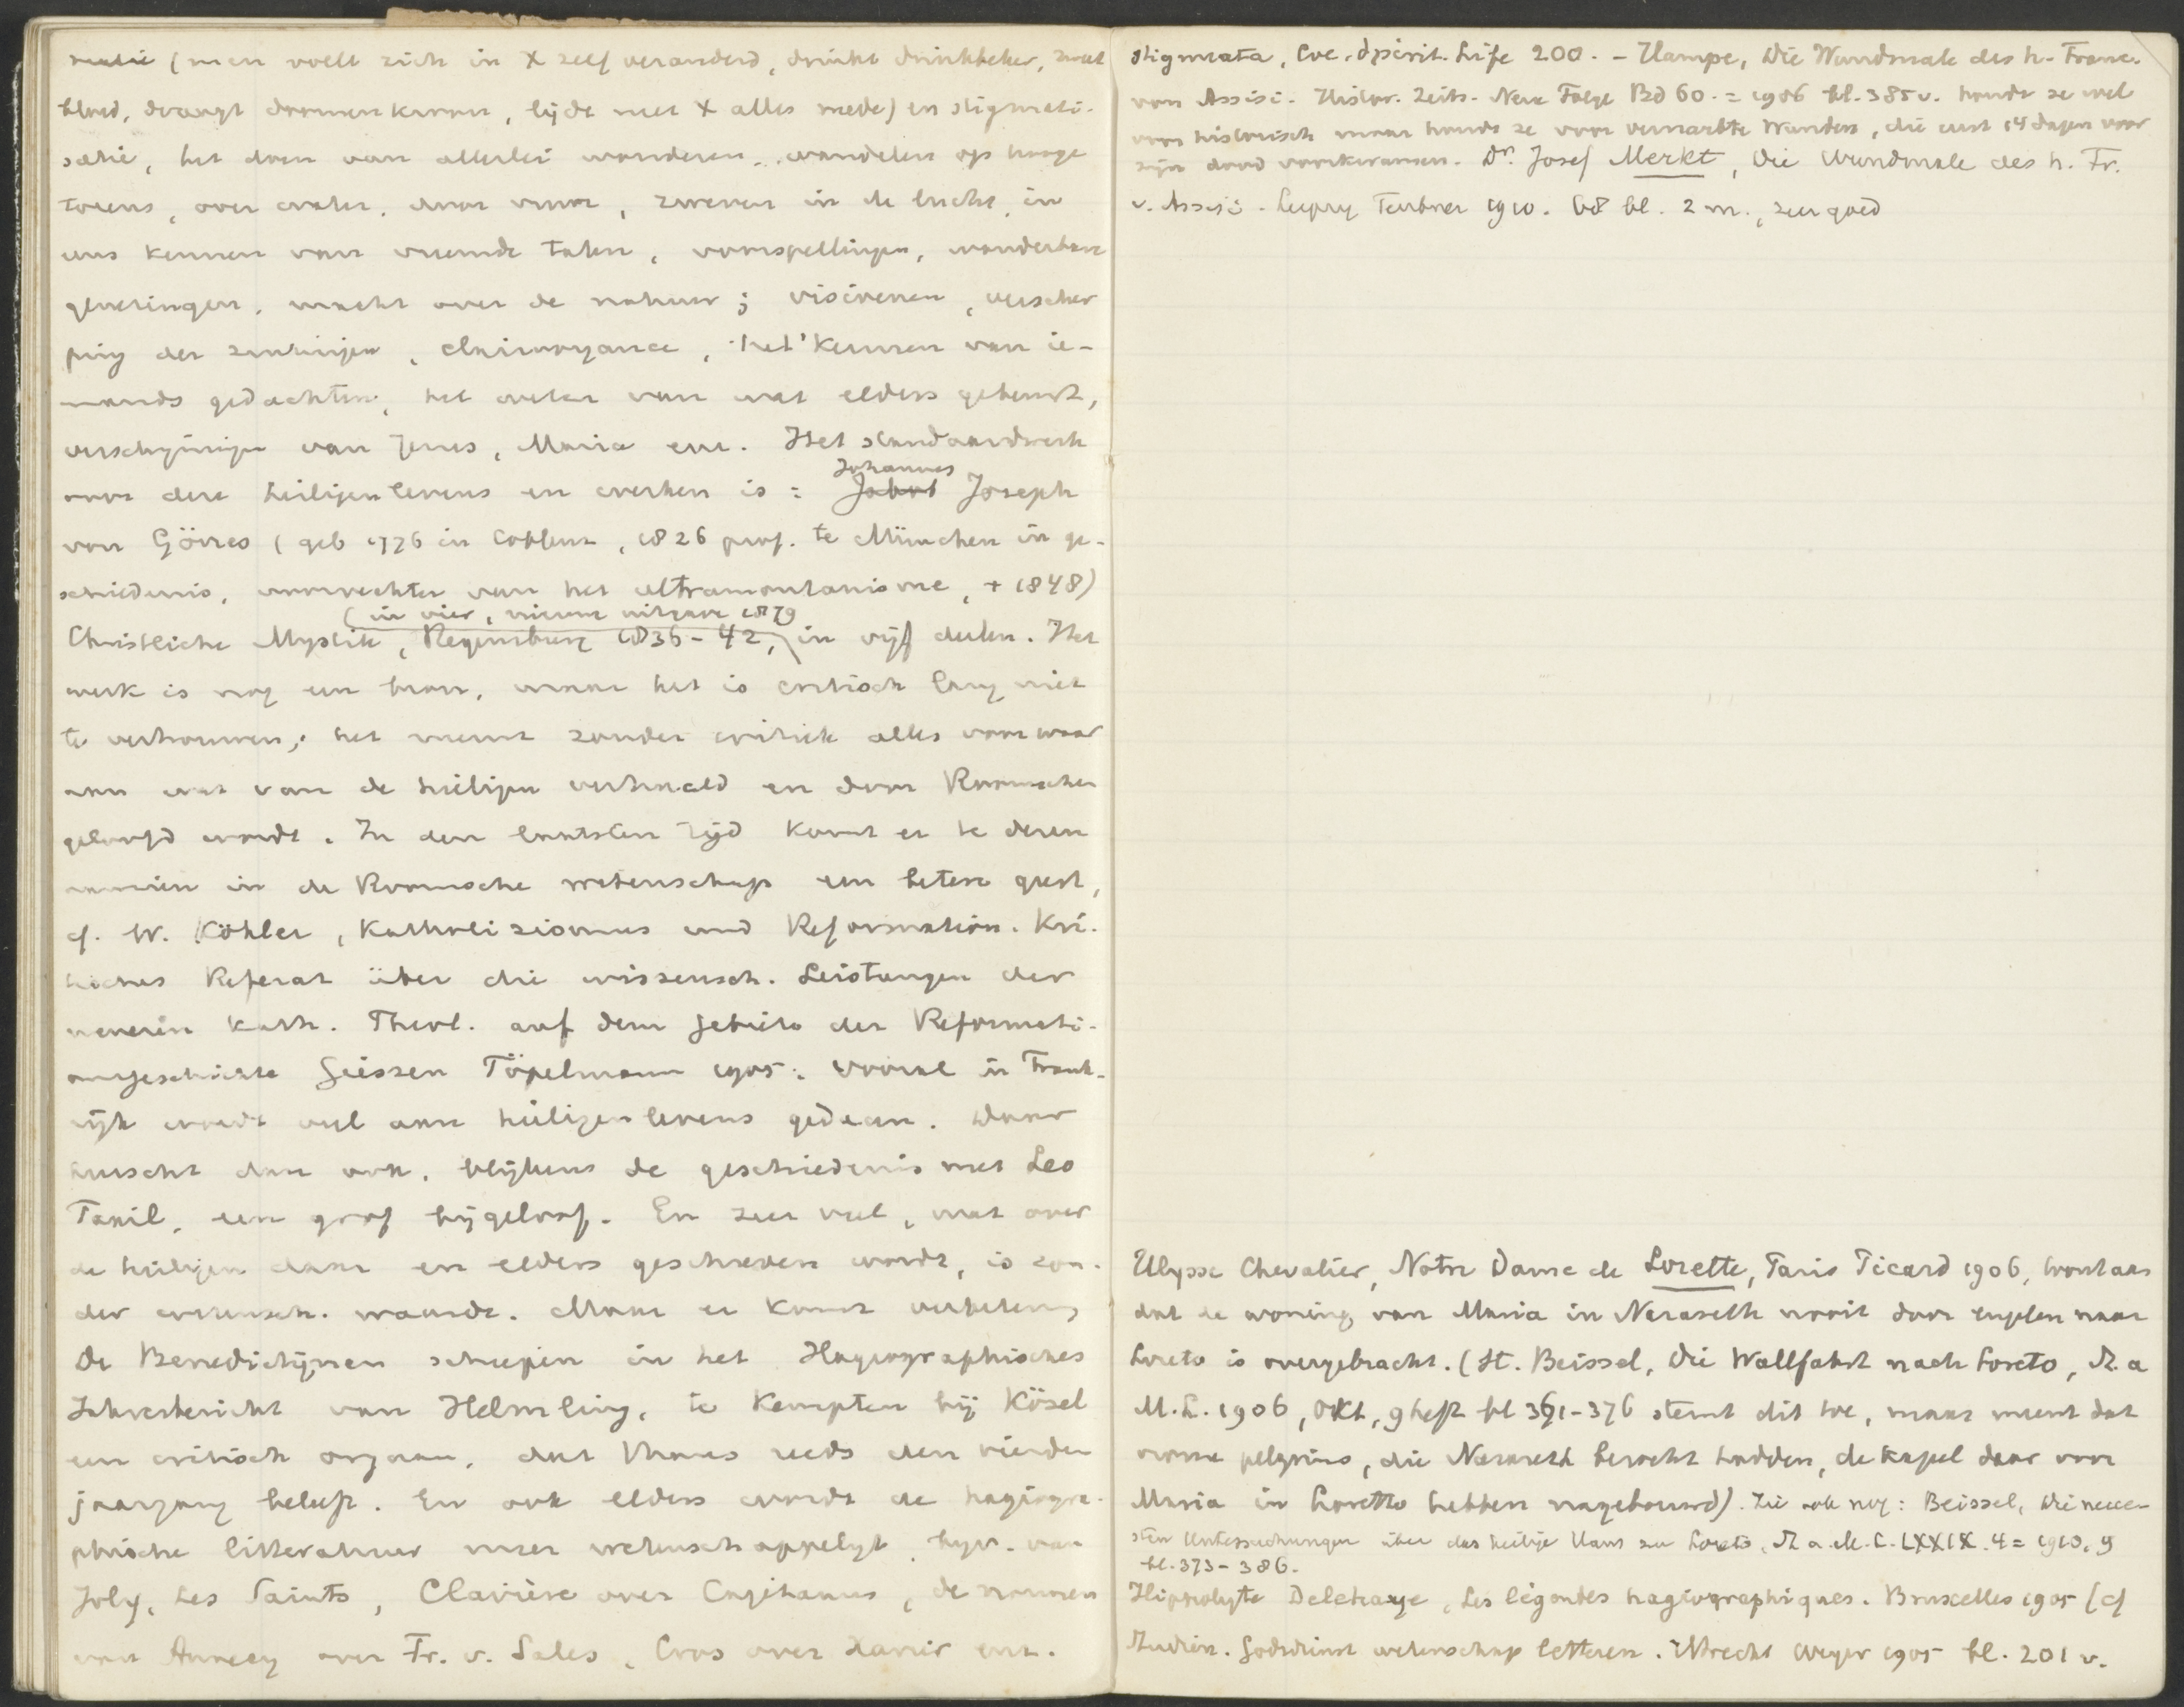 (men voelt zich in X zelf veranderd, drinkt drinkbeker, zweet
bloed, draagt doornenkroon, lijdt met X alles mede) en stigmati-
satie, het doen van allerlei wonderen, wandelen op hooge
torens, over water, door vuur, zweven in de lucht, in
eens kennen van vreemde talen, voorspellingen, wonderbare
genezingen, macht over de natuur; visioenen, verscher
ping der zintuigen, clairvoyance, het kennen van ie-
mands gedachten, het weten van wat elders gebeurt,
verschijningen van Jezus, Maria enz. Het standaardwerk
voor deze heiligenlevens en werken is: Johannes Joseph
von Görres (geb 1776 in Coblenz, 1826 prof. te München in ge-
schiedenis, voorvechter van het ultramontanisme, + 1848)
(in vier, nieuwe uitgave 1879
Christliche Mystik, Regensburg 1836-42, in vijf deelen. Het
werk is nog een bron, maar het is critisch lang niet
te vertrouwen; het neemt zonder critiek alles voor waar
aan wat van de heiligen verhaald en door Roomschen
geloofd wordt. In den laatsten tijd komt er te dezen
aanzien in de Roomsche wetenschap een betere geest,
cf. W. Köhler, Katholizismus und Reformation. Kri-
tisches Referat über die wissensch. Leistungen der
neueren Kath. Theol. auf dem Gebiete der Reformati-
onsgeschichte Giessen Töpelmann 1905. Vooral in Frank-
rijk wordt veel aan heiligenlevens gedaan. Daar
heerscht dan ook, blijkens de geschiedenis met Leo
Taxil, een grof bijgeloof. En zeer veel, wat over
de heiligen daar en elders geschreven wordt, is zon-
der wetensch. waarde. Maar er komt verbetering
De Benedictijnen schiepen in het Hagiographisches
Jahresbericht van Helmling, te Kempten bij Kösel
een critisch orgaan, dat thans reeds den vierden
jaargang beleeft. En ook elders wordt de hagiogra-
phische litteratuur meer wetenschappelijk, bijv. van
Joly, Les Saints, Clavière over Cajetanus, de nonnen
van Annecy over Fr. v. Sales, Cros over Xavier enz.
stigmata, Coe, Spirit. Life 200. - Hampe, Die Wundmale des h. Franc.
von Assisi. Histor. Zeits. Neue Folge Bd 60. = 1906 bl. 385 v. houdt ze wel
voor historisch maar houdt ze voor vernarbte Wunden, die eerst 14 dagen voor
zijn dood voorkwamen. Dr. Josef Merkt, Die Wundmale des h. Fr.
v. Assisi. Leipzig Teubner 1910. 68 bl. 2 m., zeer goed
Ulysse Chevalier, Notre Dame de Lorette, Paris Picard 1906, toont aan
dat de woning van Maria in Nazareth nooit door engelen naar
Loreto is overgebracht. (St. Beissel, Die Wallfahrt nach Loreto, St. a
M. L. 1906, Okt, 9 heft bl 361-376 stemt dit toe, maar meent dat
vrome pelgrims, die Nazareth bezocht hadden, de kapel daar voor
Maria in Loretto hebben nagebouwd). Zie ook nog: Beissel, Die neue-
sten Untersuchungen über das heilige Haus zu Loreto, St. a. M. L. LXXIX. 4 = 1910, 9
bl. 373-386.
Hippolyte Delehaye, Les légendes hagiographiques. Bruxelles 1905 (cf
Studiën. Godsdienst wetenschap letteren. Utrecht 1905 bl. 201 v.